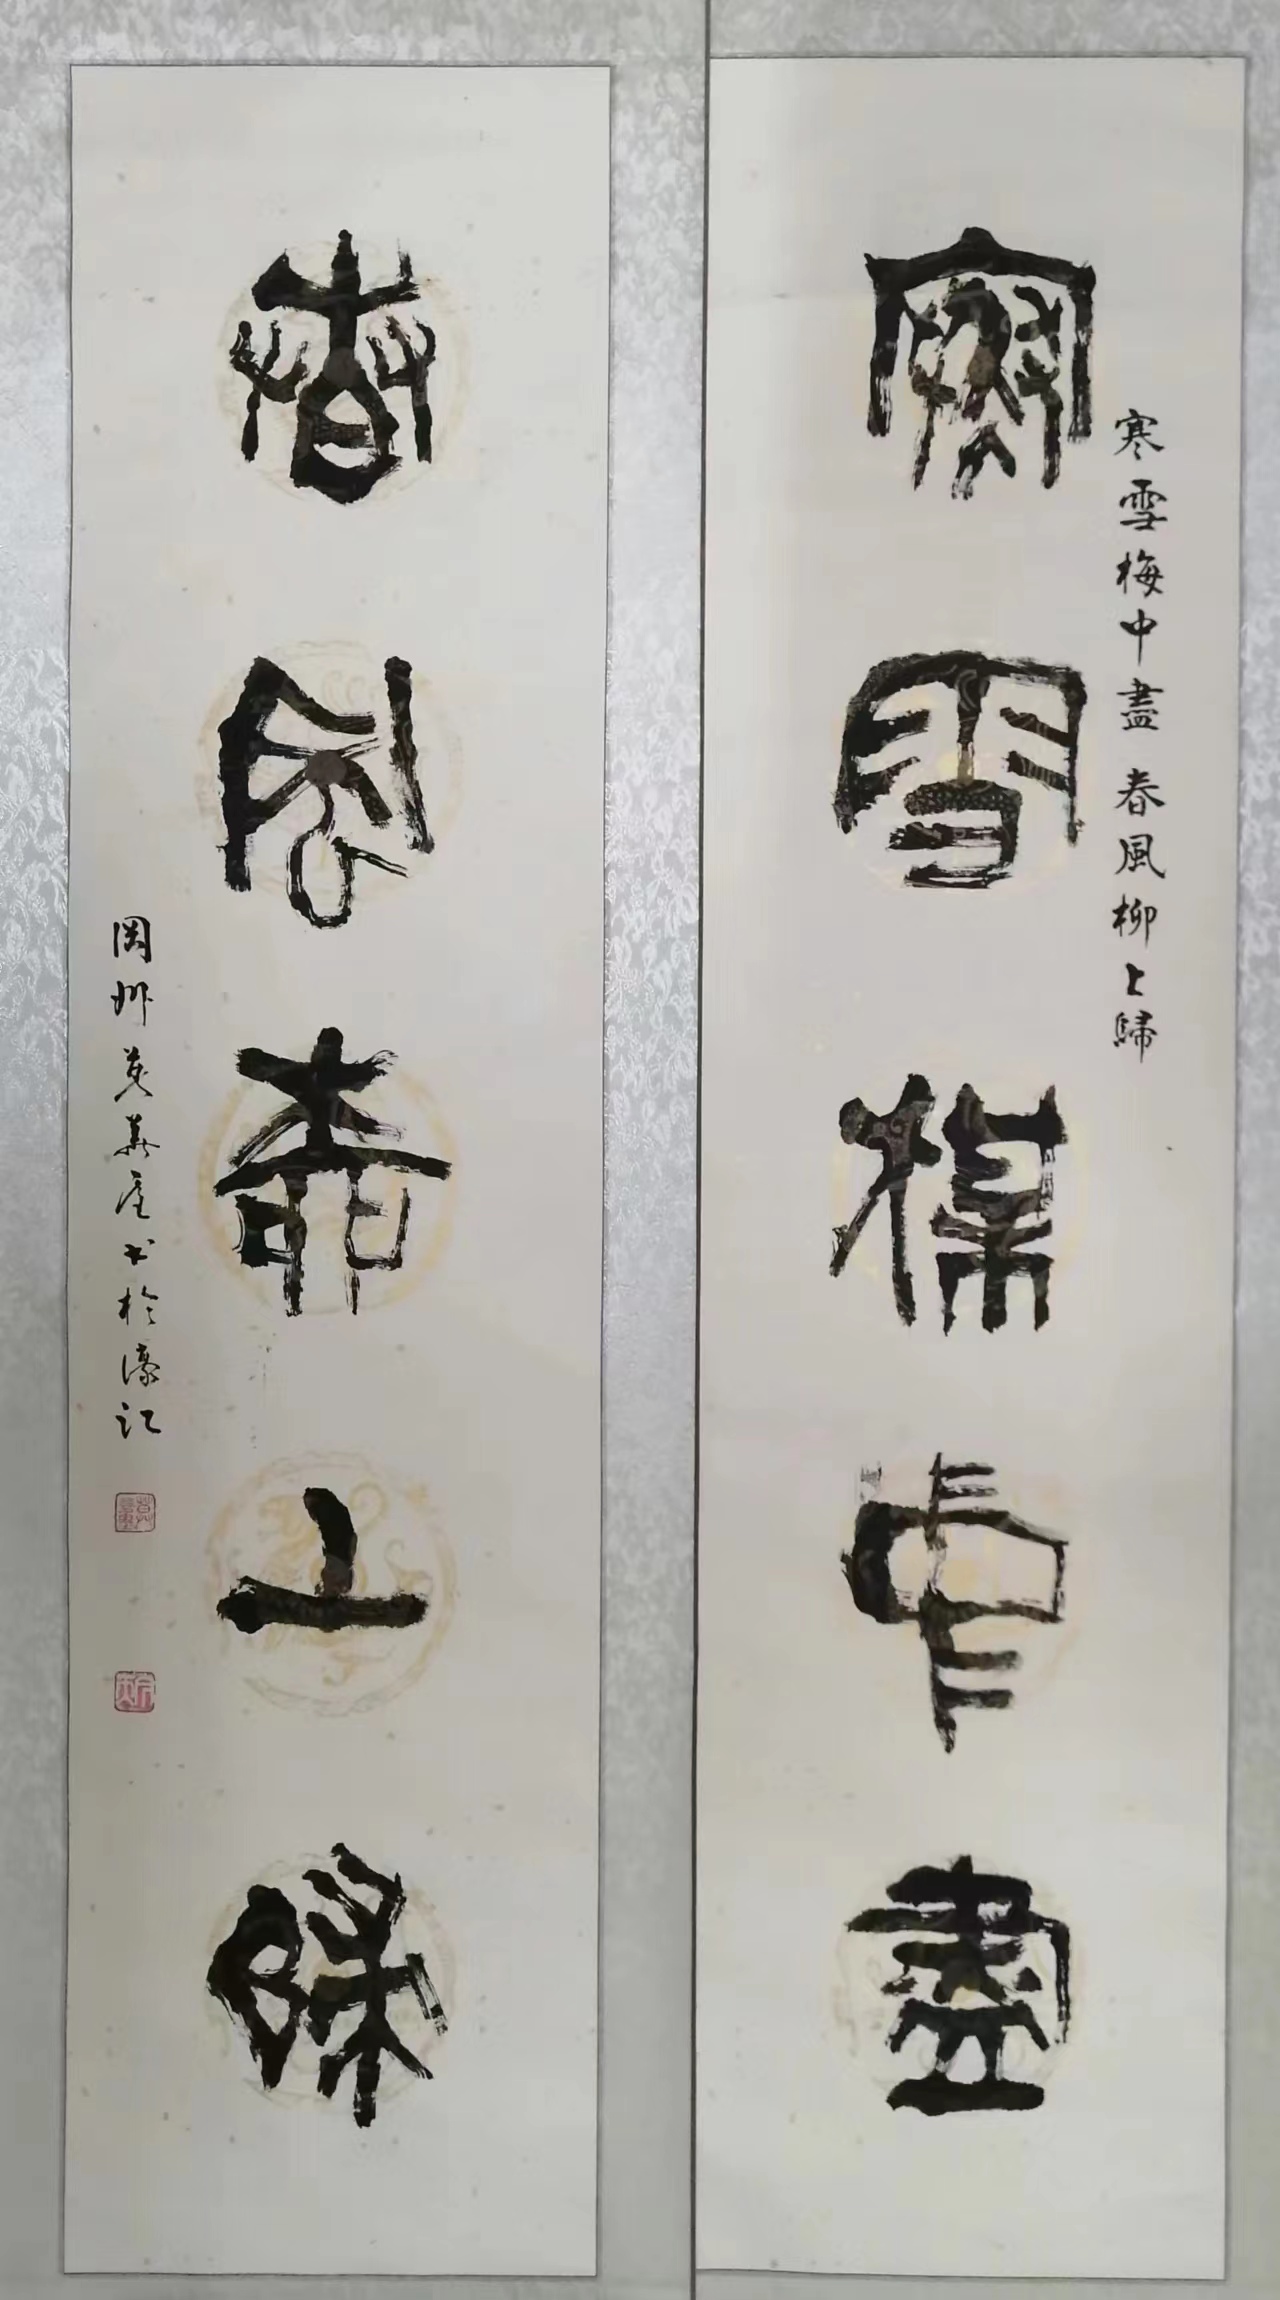 寒雪梅中盡
寒雪梅中盡 春風柳上歸
春風柳上歸
岡州吳華居書於濠江